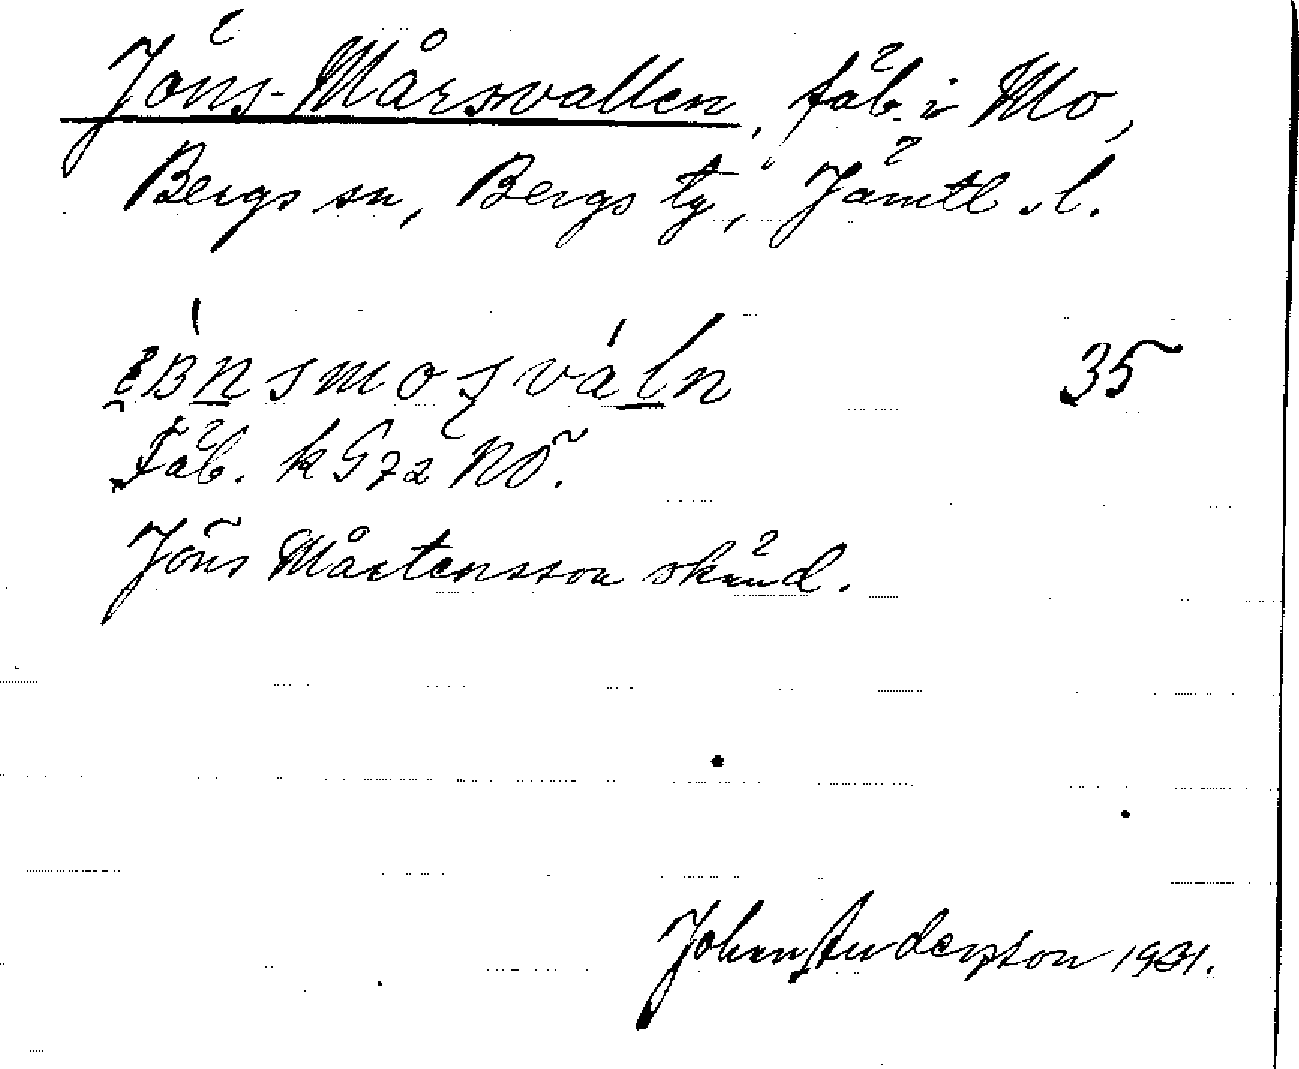 Jöns-Mårsvallen, fäb. i Mo,
Bergs sn, Bergs tg, Jämtl. l.
35
Fäb. k G72 NÖ.
Jöns Mårtensson skänd.
John Anderson 1931.